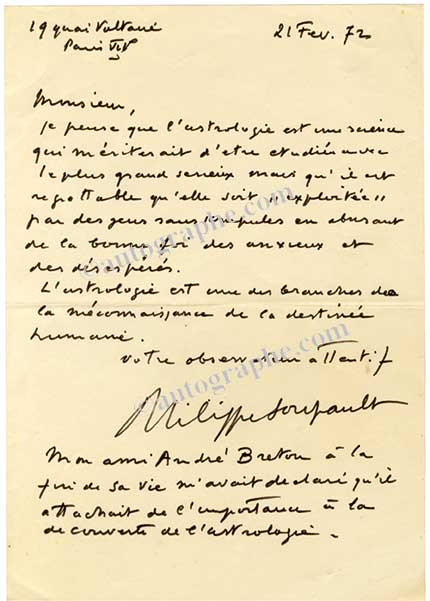 19 quai Voltaire
Paris VII
21 Fev. 72
Monsieur,
Je pense que l'astrologie est une science
qui mériterait d'etre etudiée avec
le plus grand serieux mais qu'il est
regrettable qu'elle soit "exploitée"
par des gens sans scrupules en abusant
de la bonne foi des anxieux et
des désespérés.
L'astrologie est une des branches de
la méconnaissance de la destinée
humaine.
Votre observateur attentif
Philippe Soupault
Mon ami André Breton à la
fin de sa vie m'avait declaré qu'il
attachait de l'importance à la
decouverte de l'astrologie.
©autographe.com
©autographe.com